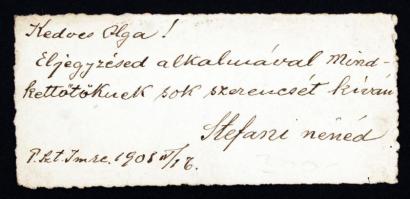 Kedves Olga!
Eljegyzésed alkalmával Mind-
kettőtöknek sok szerencsét kíván
Stefani nénéd
P.szt. Imre. 1908